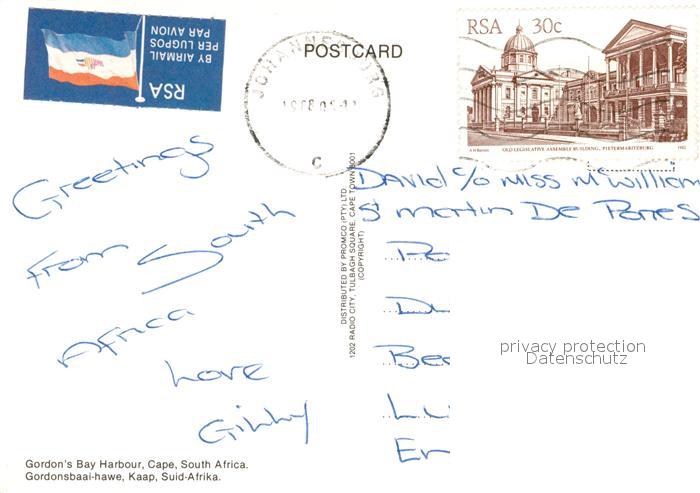 RSA
BY AIRMAIL
PER LUGPOS
PAR AVION
POSTCARD
JOHANNESBURG
C
RSA 30c
OLD LEGISLATIVE ASSEMBLY BUILDING, PIETERMARITZBURG
1982
Greetings
from South
Africa
Love
Gordon's Bay Harbour, Cape, South Africa.
Gordonsbaai-hawe, Kaap, Suid-Afrika.
DISTRIBUTED BY PROMCO (PTY) LTD
1202 RADIO CITY, TULBAGH SQUARE, CAPE TOWN 8001
(COPYRIGHT)
David c/o Miss McWilliam
St Martin De Porres
Po
Bee
Er
privacy protection
Datenschutz